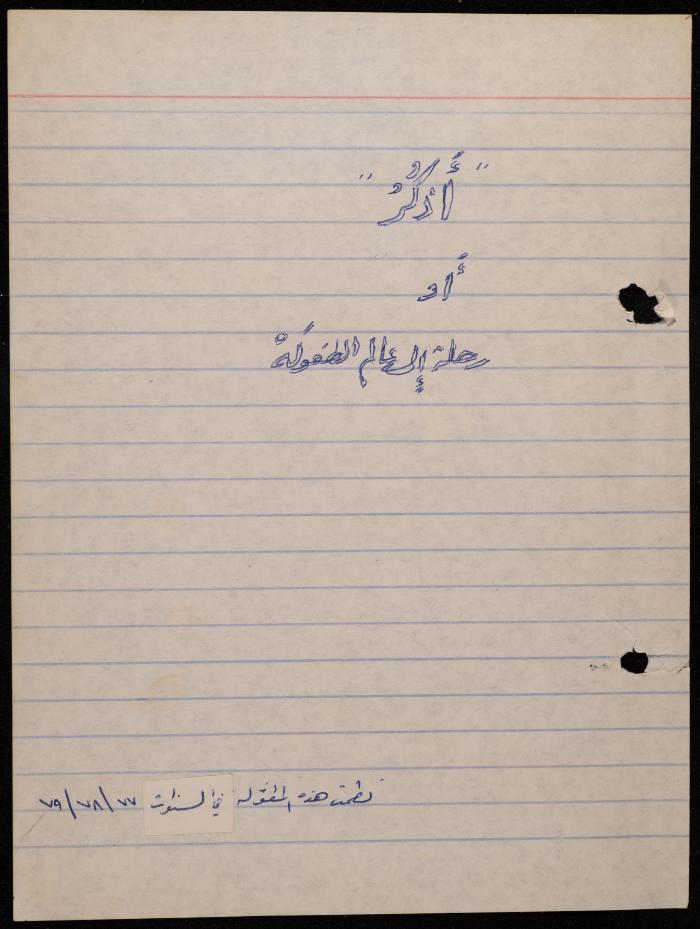 "أَذكُرُ"
أَو
رحلة إِلى عالم الطفولَهْ
نظمت هذه المقوله في السنوات ٧٧/٧٨/٧٩